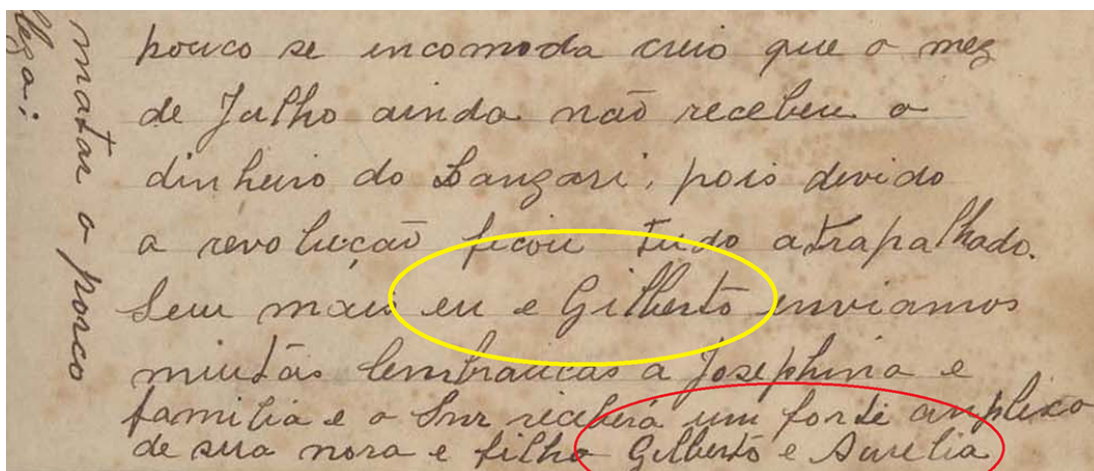 pouco se incomoda creio que o mez
de Julho ainda não recebeu o
dinheiro do Sangari, pois devido
a revolução ficou tudo atrapalhado.
Sem mais eu e Gilberto enviamos
muitas lembrancas a Josephina e
familia e o Snr receberá um forte amplexo
de sua nora e filho Gilberto e Aurelia
matar o porco